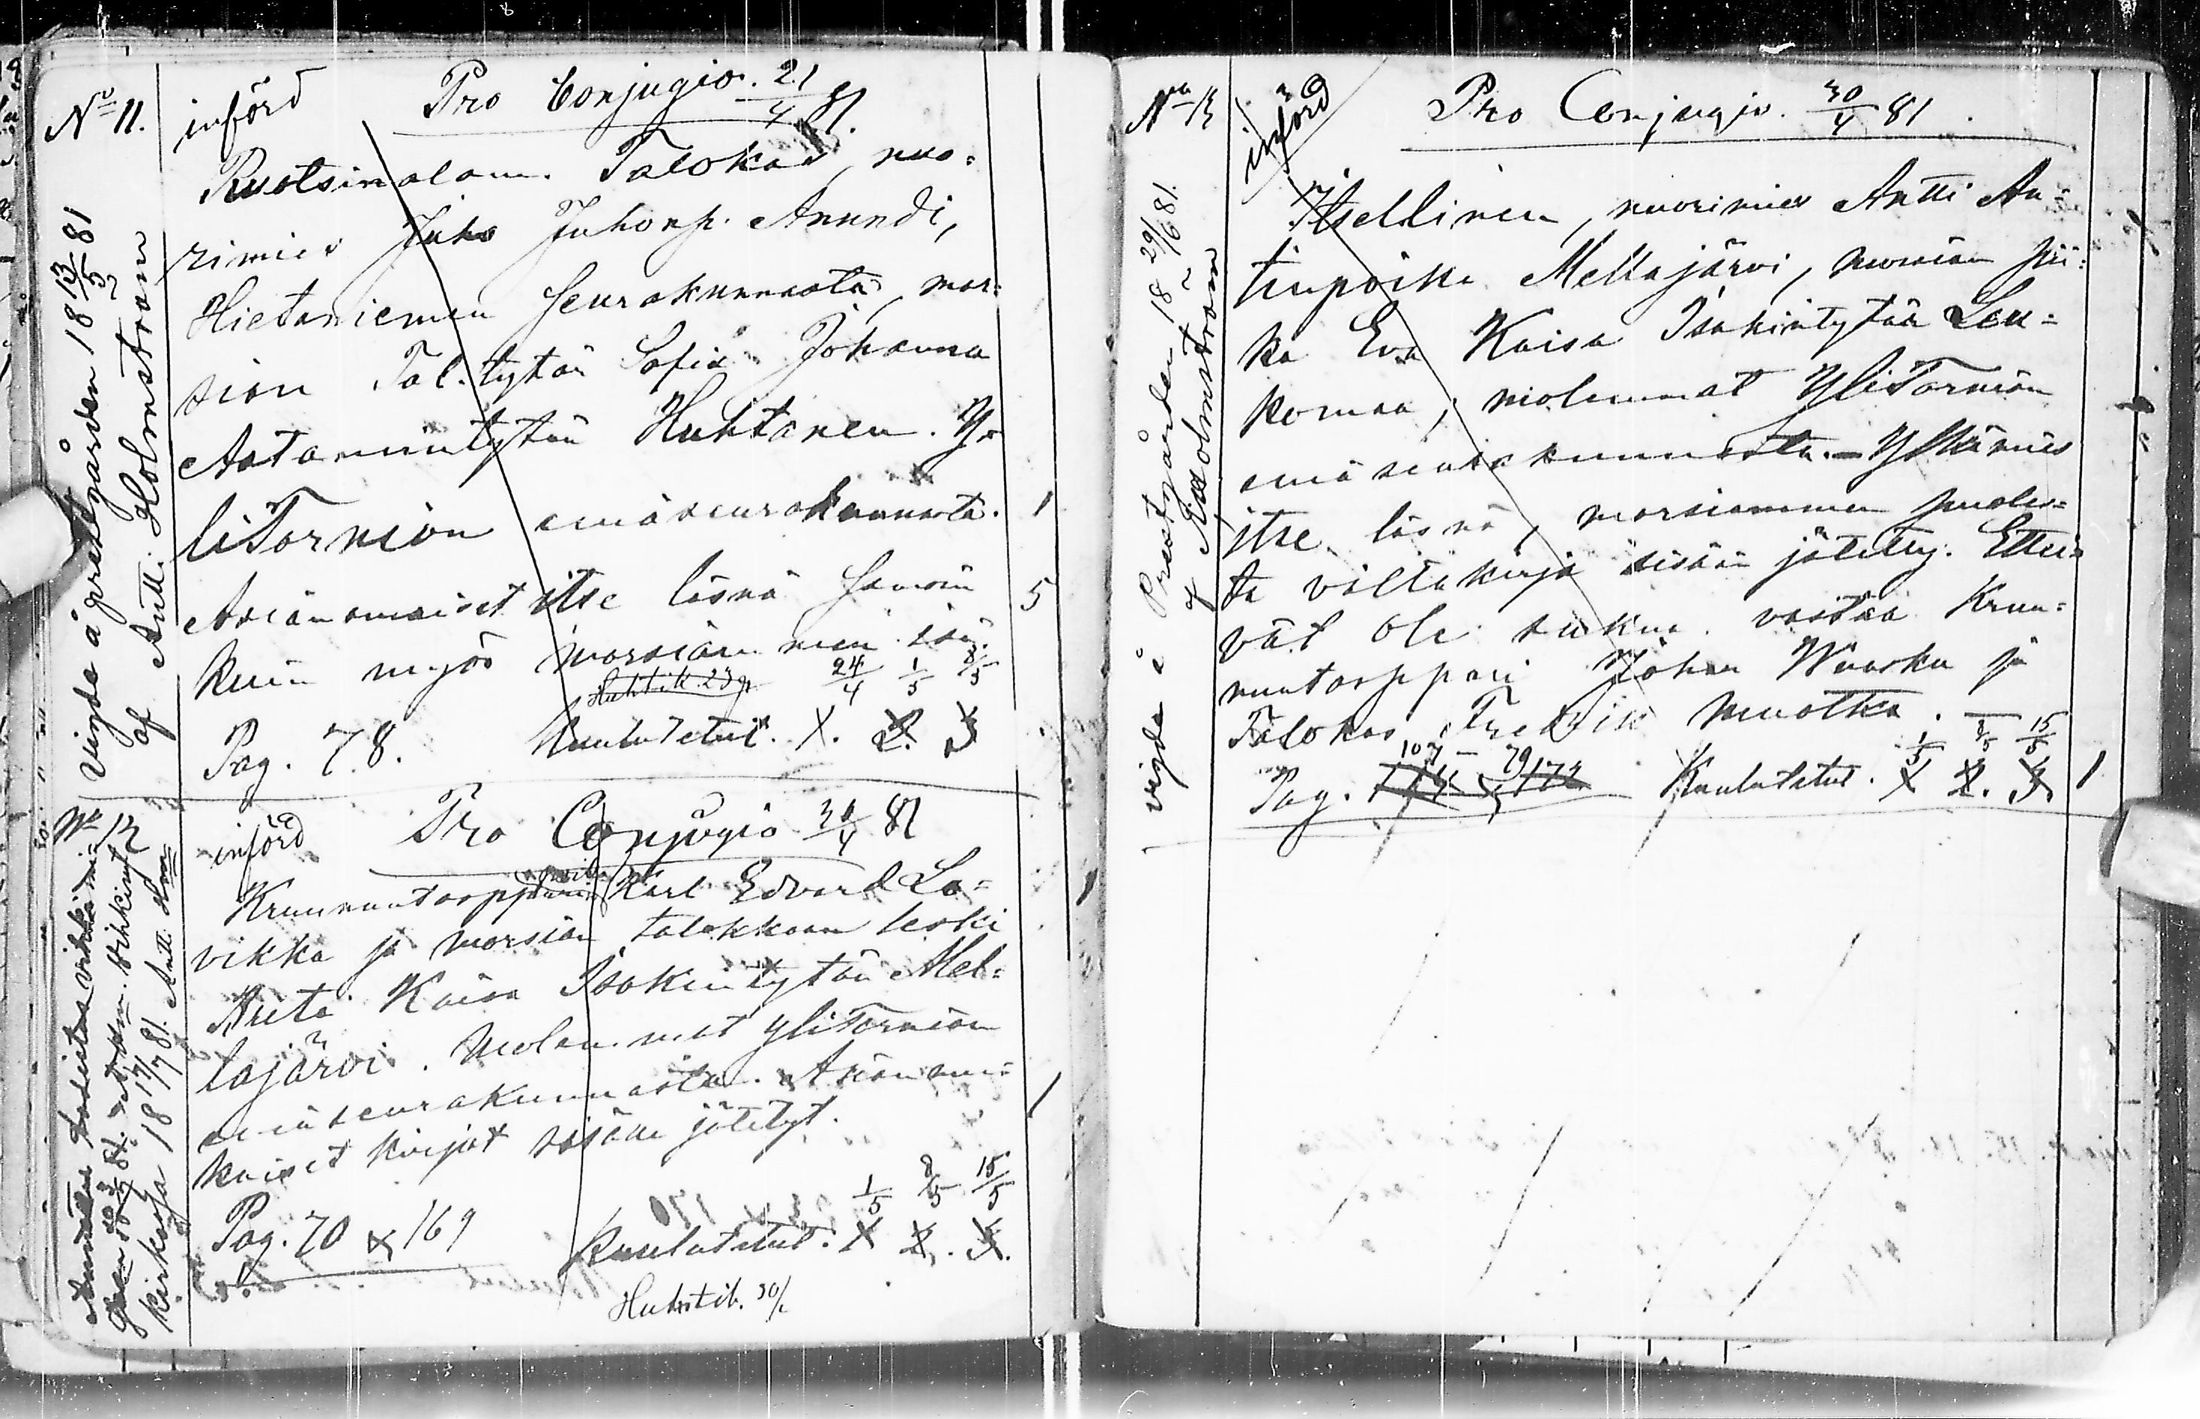 No 11. införd Pro Conjugio. 21/4 81.
Ruotsinalam. Talokas, nuo-
rimies Juho Juhonp. Anundi,
Hietaniemen seurakunnasta, mor-
sian Tal. tytär Sofia Johanna
Aatamintytär Huhtanen. Y-
liTornion emäseurakunnasta. 1
Asianomaiset itse läsnä samoin 5
kuin myös morsiammen isä.
Huhtik. 23 p. 24/4 1/5 8/5
Pag. 78. Kuulutetut. 1. 2. 3
Vigde å prestgården 18 13/5 81
af Antt. Holmström
No 12 införd Pro Conjugio 30/4 81
Kruununtorppari Karl Edvard La-
vikka ja morsian talokkaan leski
Kaisa Isakintytär Mel-
lajärvi. Molemmat YliTornion
emäseurakunnasta. Asianmu-
kaiset kirjat sisään jätetyt. 1
1/5 8/5 15/5
Pag. 70 & 169 Kuulutetut. 1 2. 3.
Huhtik. 30/
kirkossa 18 17/7 81. Antt. Hm
No 13 införd Pro Conjugio. 30/4 81.
Itsellinen, nuorimies Antti An-
tinpoika Mellajärvi, morsian pii-
ka Eva Kaisa Isakintytär Leu-
komaa, molemmat YliTornion
emäseurakunnasta. — Ylkämies
itse läsnä, morsiammen puoles-
ta valtakirja sisään jätetty. Ettei-
vät ole sukua vastaa Kruu-
nuntorppari Johan Waaska ja
Talokas Fredrik Muotka.
107 — 79 1/5 8/5 15/5
Pag. 174 & 172 Kuulutetut. 1 2. 3. 1
vigde i Prestgården 18 29/6 81.
af A Holmström